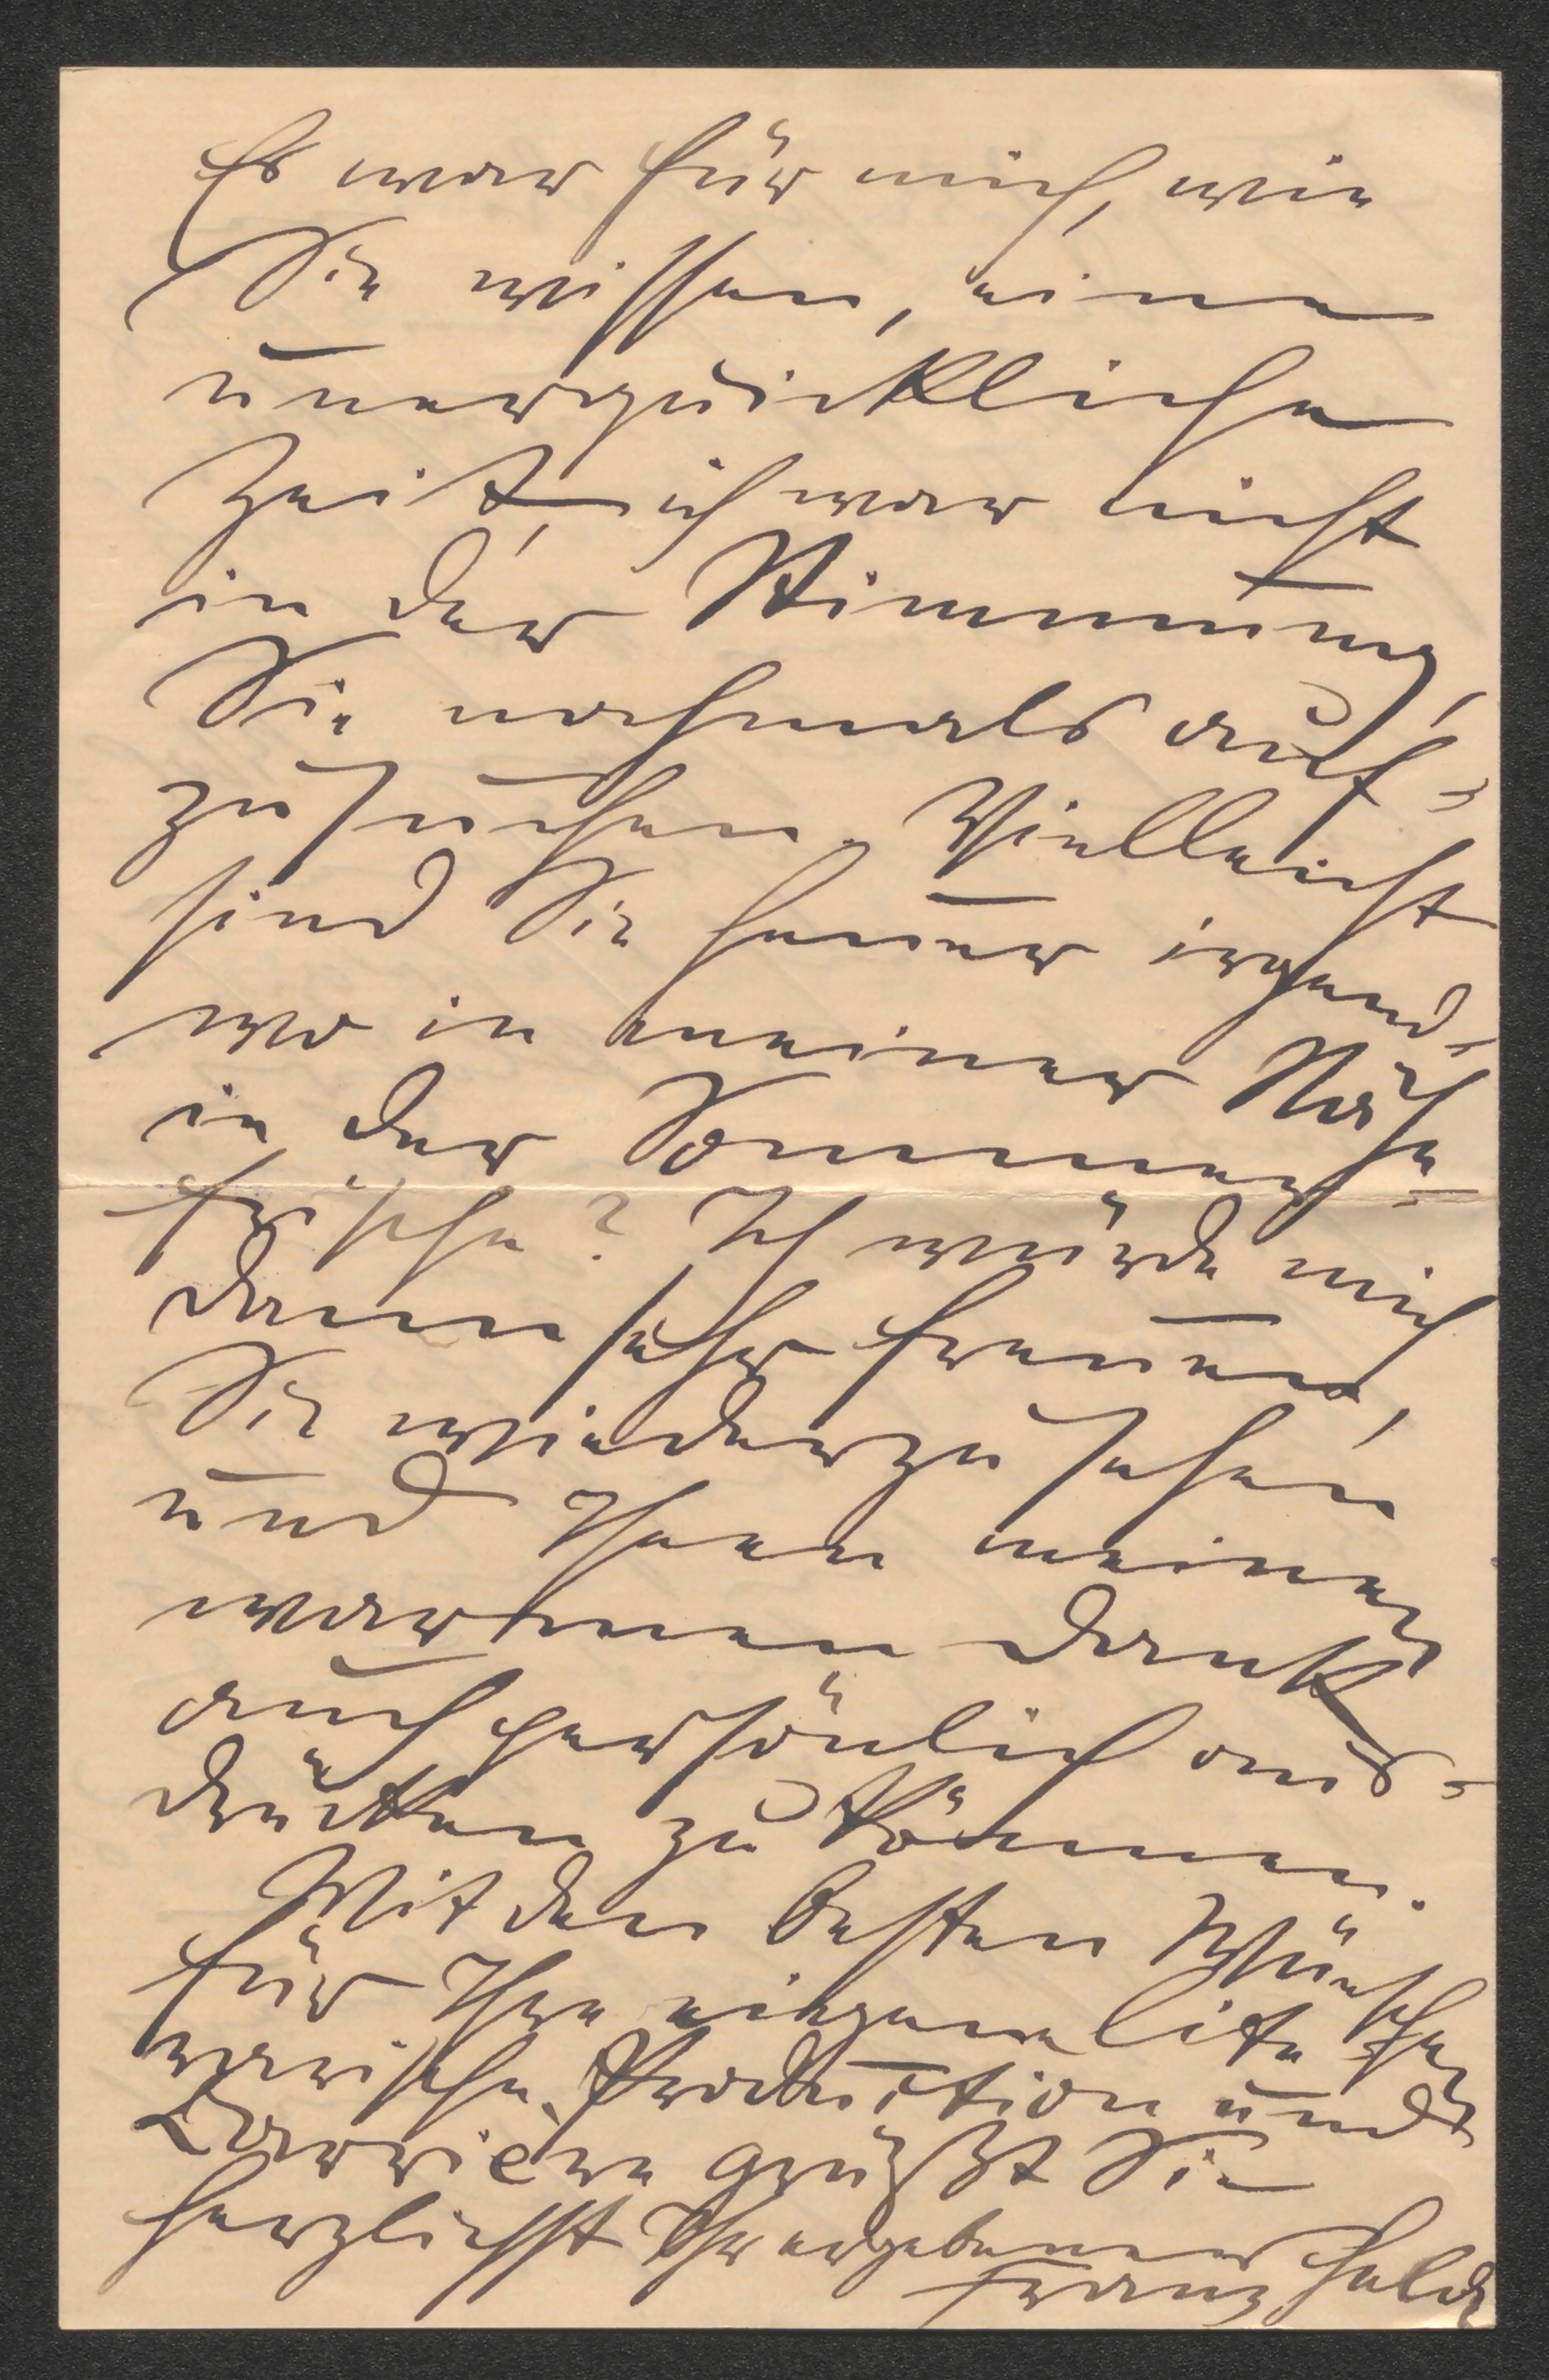 Es war für mich, wie
Sie wissen, eine
unerquickliche
Zeit, ich war nicht
in der Stimmung,
Sie nochmals auf-
zusuchen. Vielleicht
sind Sie heuer irgend-
wo in meiner Nähe
in der Sommer-
frische? Ich würde mich
dann sehr freuen,
Sie wiederzusehen
und Ihnen meinen
warmen Dank
auch persönlich aus-
drücken zu können.
Mit den besten Wünschen
für Ihre eigene lite-
rarische Production und
Carrière grüßt Sie
herzlichst Ihr ergebener
Franz